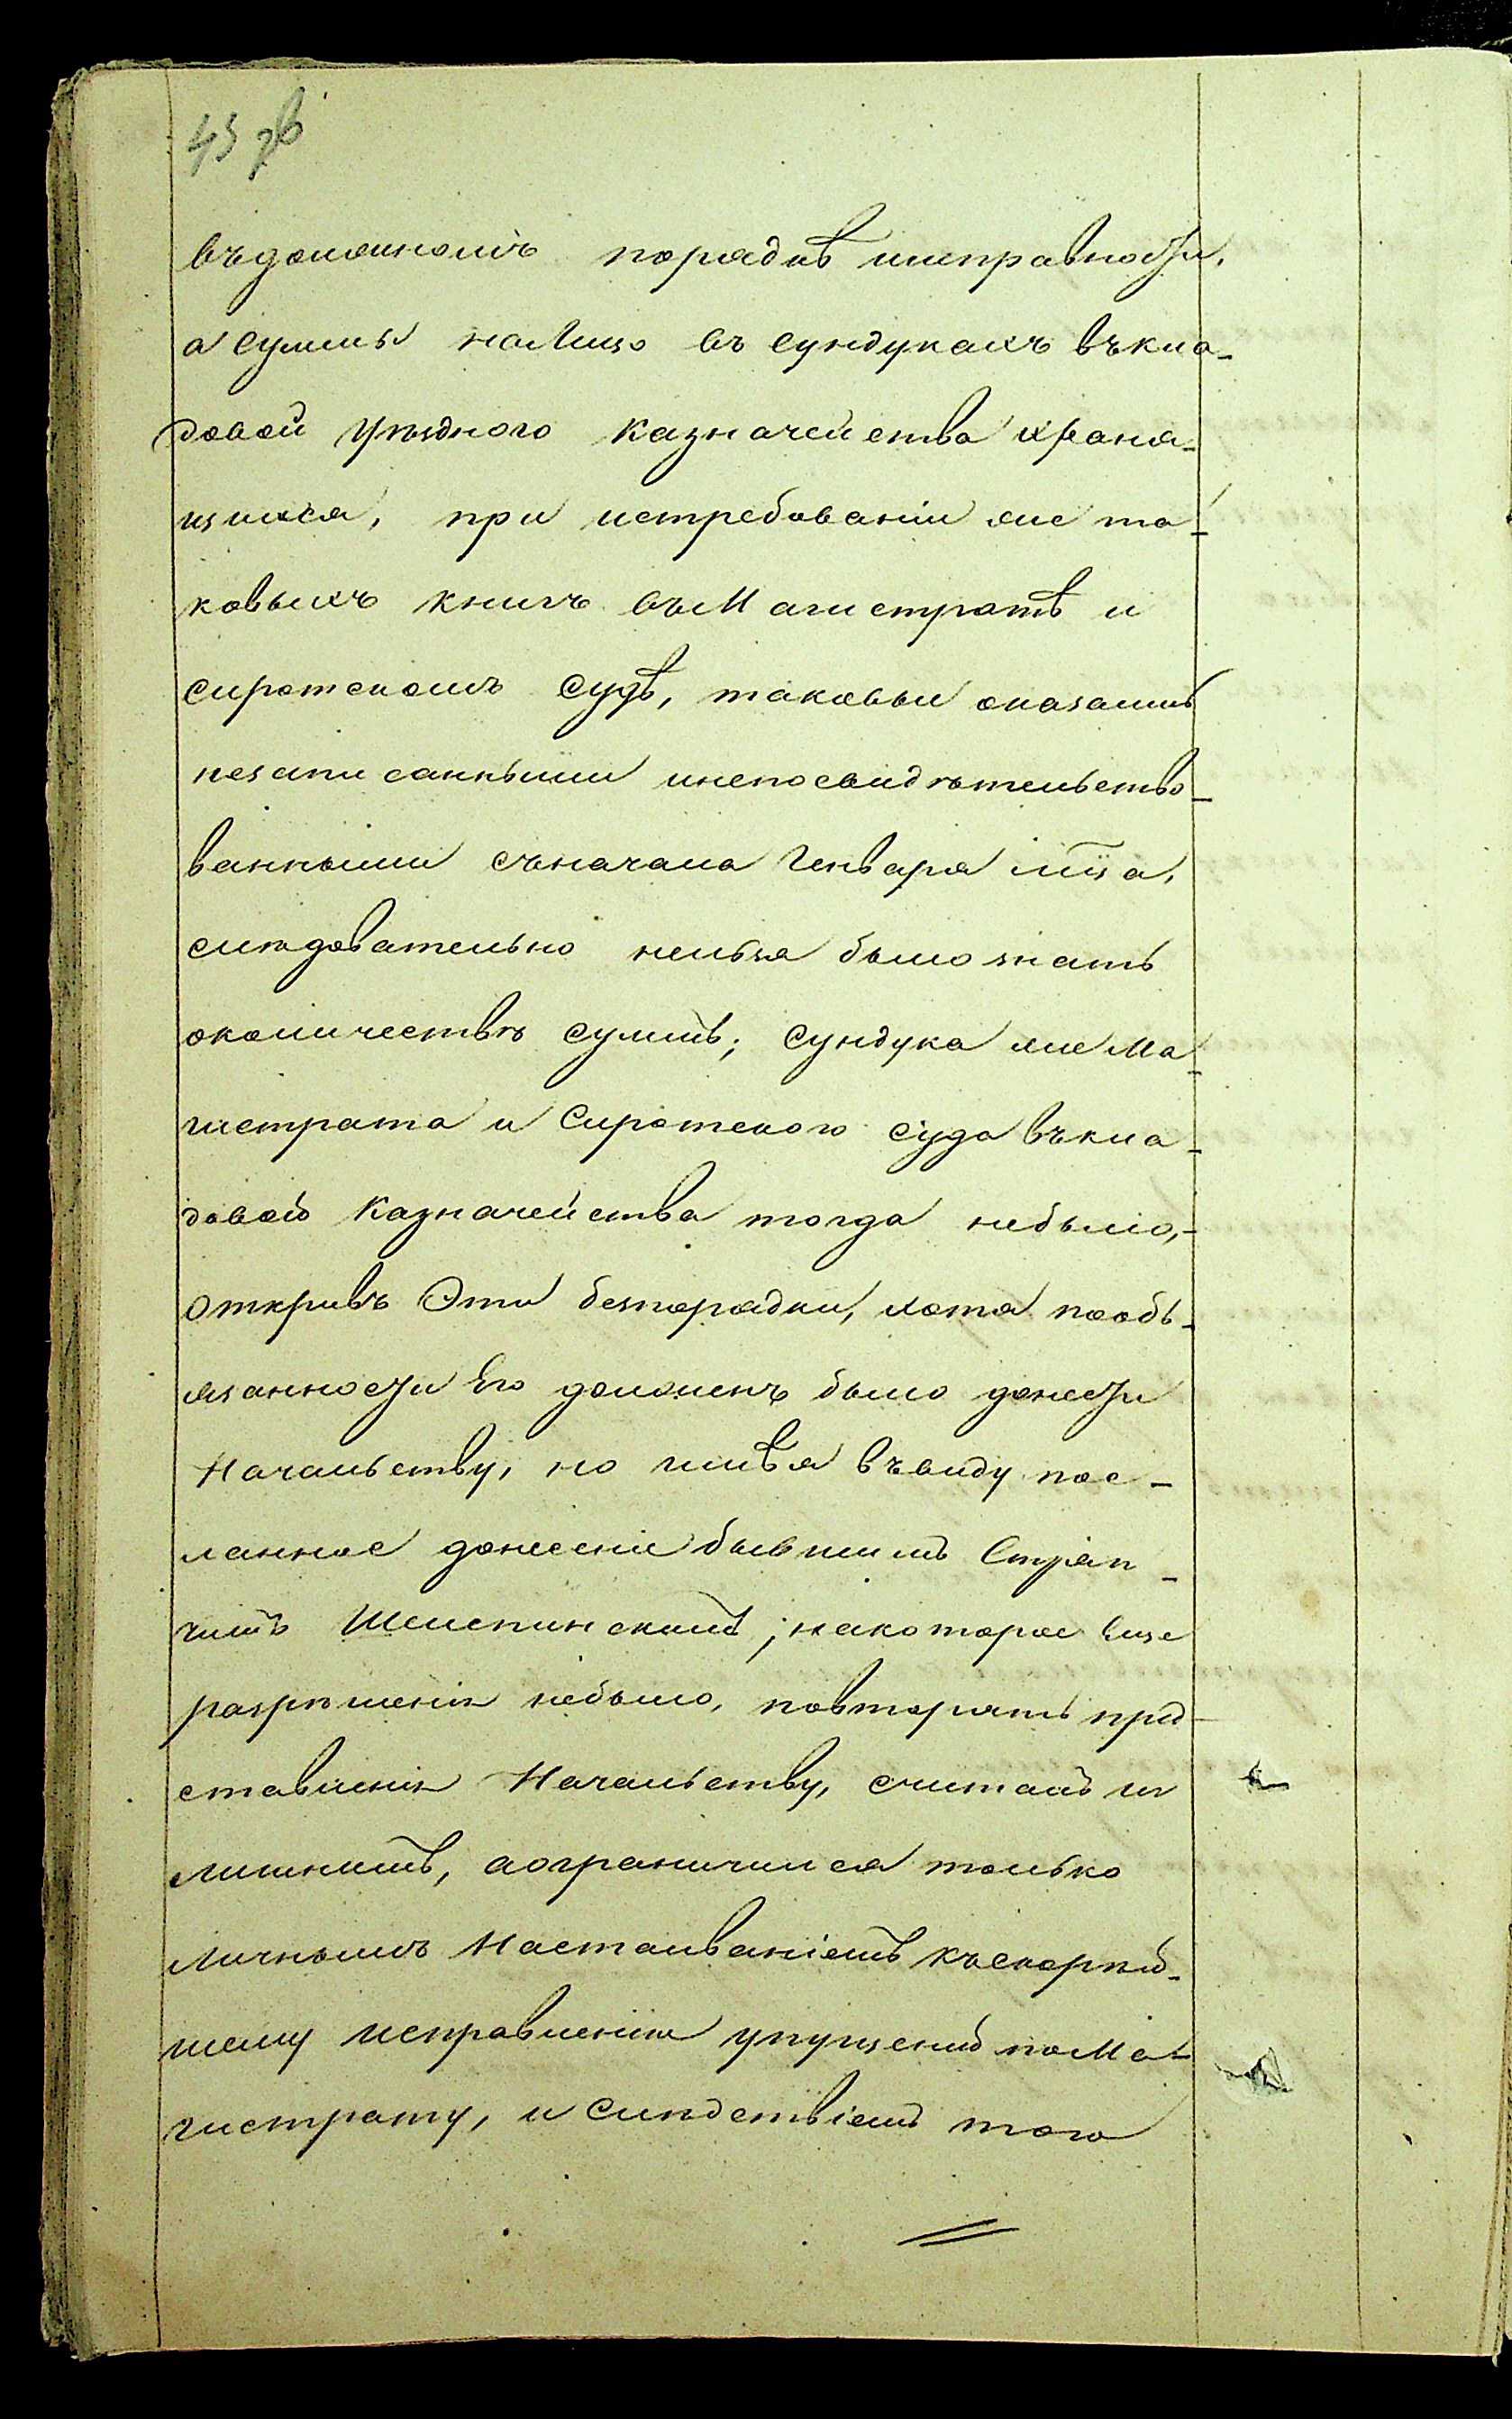 43 об
въдолжномъ порядкѣ иисправности,
а суммы налицо въ сундукахъ въкла-
довой уѣзднаго казначейства храня-
щихся, при истребованіи же та-
ковыхъ книгъ въМагистратѣ и
сиротскомъ судѣ, таковыи оказались
незаписанными инепосвидѣтельство-
ванными съначала Генваря мца,
слѣдовательно нельзя было знать
околичествѣ суммъ; сундука же Ма-
гистрата и Сиротскаго суда въкла-
довой Казначейства тогда небыло,-
открывъ Эти безпорядки, хотя пообя-
язанности Его долженъ было донести
Начальству, но имѣя въвиду пос-
ланное донесеніе бывшимъ Стряп-
чимъ Шелепинскимъ, накоторое еще
разрѣшенія небыло, повторять пред-
ставленія Начальству, считалъ и
лишнимъ, аограничился только
личнымъ Настаиваніемъ къскорѣй-
шему исправленію упущеній поМа-
гистрату, и Слѣдствіемъ того